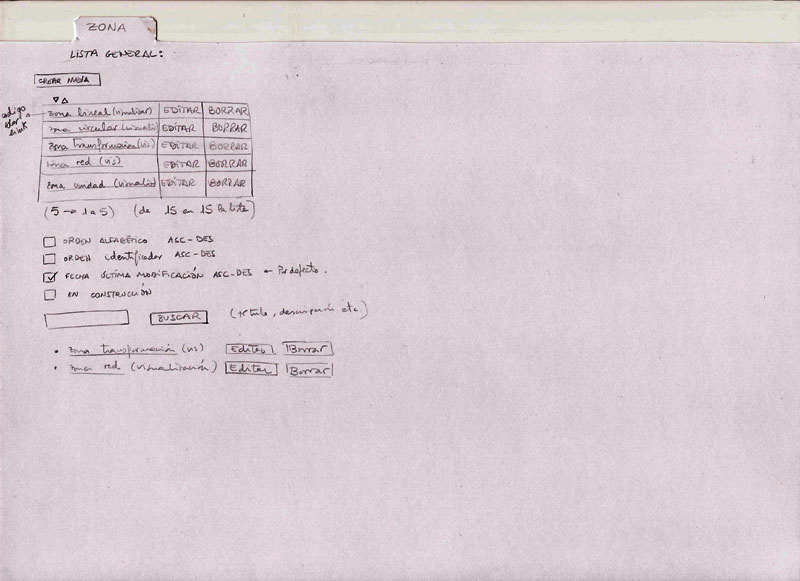 ZONA
LISTA GENERAL:
CREAR NUEVA
codigo
link
zona lineal (visualizar) EDITAR BORRAR
zona circular (visualiz) EDITAR BORRAR
zona transformación (vis) EDITAR BORRAR
zona red (vis) EDITAR BORRAR
zona unidad (visualiz) EDITAR BORRAR
(5 → 1 a 5) (de 15 en 15 la lista)
ORDEN ALFABÉTICO ASC-DES
ORDEN identificador ASC-DES
FECHA ÚLTIMA MODIFICACIÓN ASC-DES ← Por defecto.
EN CONSTRUCIÓN
BUSCAR (título, descripción etc.)
• zona transformación (vis) Editar Borrar
• zona red (visualización) Editar Borrar